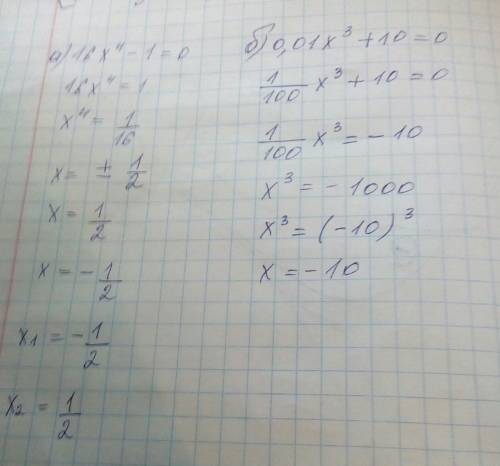 а) 16x⁴ - 1 = 0
16x⁴ = 1
x⁴ = 1/16
x = ± 1/2
x = 1/2
x = - 1/2
x₁ = - 1/2
x₂ = 1/2
б) 0,01x³ + 10 = 0
1/100 x³ + 10 = 0
1/100 x³ = - 10
x³ = - 1000
x³ = (-10)³
x = - 10